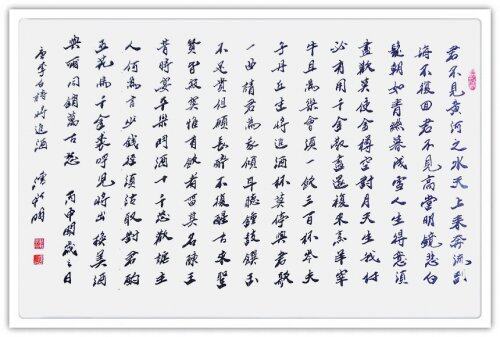 君不見黄河之水天上来奔流到
海不復回君不見高堂明鏡悲白
髮朝如青絲暮成雪人生得意須
盡歡莫使金樽空對月天生我材
必有用千金散盡還復来烹羊宰
牛且為樂會須一飲三百杯岑夫
子丹丘生将進酒杯莫停與君歌
一曲請君為我傾耳聽鐘鼓饌玉
不足貴但願長醉不復醒古来聖
賢皆寂寞惟有飲者留其名陳王
昔時宴平樂斗酒十千恣歡謔主
人何為言少錢徑須沽取對君酌
五花馬千金裘呼兒将出換美酒
與爾同銷萬古愁 丙申歲之日
唐李白詩将進酒